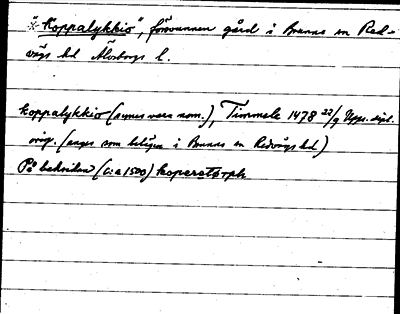 * "Koppalykkio", försvunnen gård i Brunns sn Red-
vägs hd Älvsborgs l.
koppalykkio (synes vara nom.), Timmele 1478 22/9 Upps. dipl.
orig. (anges som belägen i Brunns sn Redvägs hd)
På baksidan (c:a 1500) koperatorph